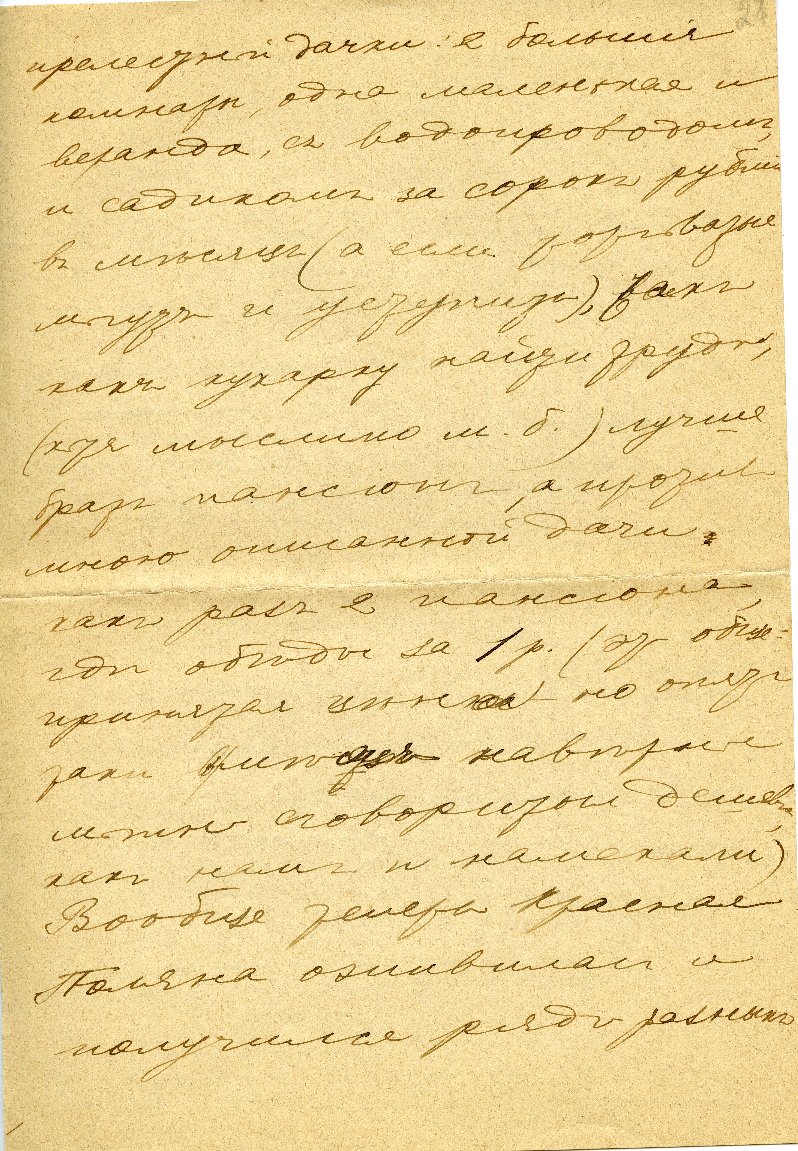 прелестной дачки: 2 большія
комнаты, одна маленькая и
веранда, съ водопроводомъ,
и садикомъ за сорокъ рублей
въ мѣсяцъ (а если
могутъ и уступить), такъ
какъ кухарку найти трудно,
(хотя мыслимо м. б.) лучше
брать пансіонъ, а противъ
мною описанной дачи
какъ разъ 2 пансіона,
гдѣ обѣды за 1 р. (эту обще-
принятая цѣна но опять
таки навѣрное
можно сговориться дешевле,
какъ намъ и намекали)
Вообще теперь Красная
Поляна оживилась и
получился рядъ разныхъ